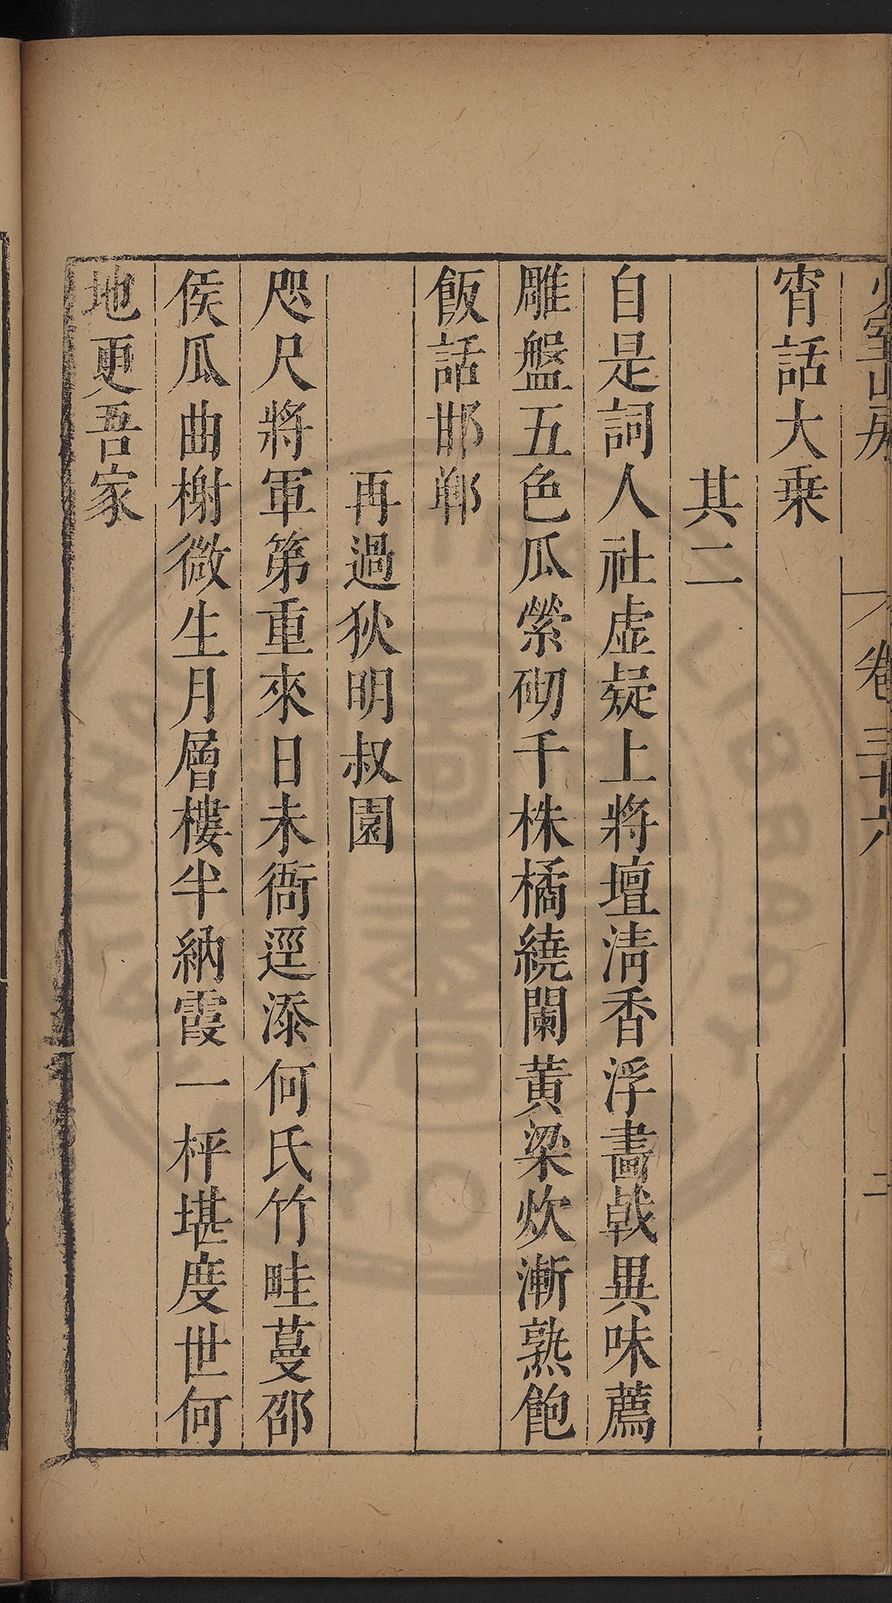 少室山房 卷三十六 二
宵話大乗
其二
自是詞人社虚疑上將壇清香浮畵戟異味薦
雕盤五色瓜縈砌千株橘繞闌黄梁炊漸熟飽
飯話邯鄲
再過狄明叔園
咫尺將軍第重來日未衙逕添何氏竹畦蔓邵
侯瓜曲榭微生月層樓半納霞一枰堪度世何
地更吾家